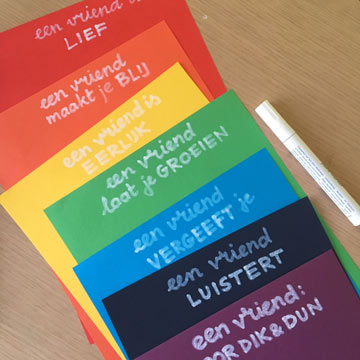 een vriend is
LIEF
een vriend
maakt je BLIJ
een vriend is
EERLIJK
een vriend
laat je GROEIEN
een vriend
VERGEEFT je
een vriend
LUISTERT
een vriend:
DOOR DIK & DUN